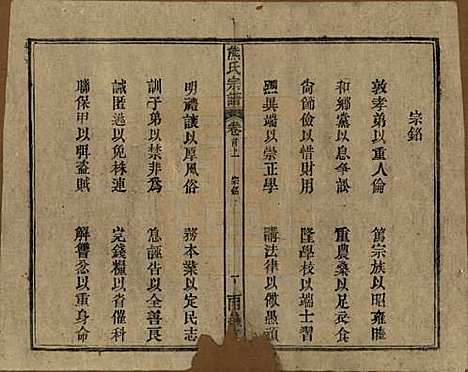 宗銘
敦孝弟以重人倫　篤宗族以昭雍睦
和鄉黨以息爭訟　重農桑以足衣食
尙節儉以惜財用　隆學校以端士習
黜異端以崇正學　講法律以儆愚頑
熊氏宗譜　卷首上　宗銘
明禮讓以厚風俗　務本業以定民志
訓子弟以禁非為　息誣告以全善良
誡匿逃以免株連　完錢糧以省催科
聯保甲以弭盜賊　解讐忿以重身命